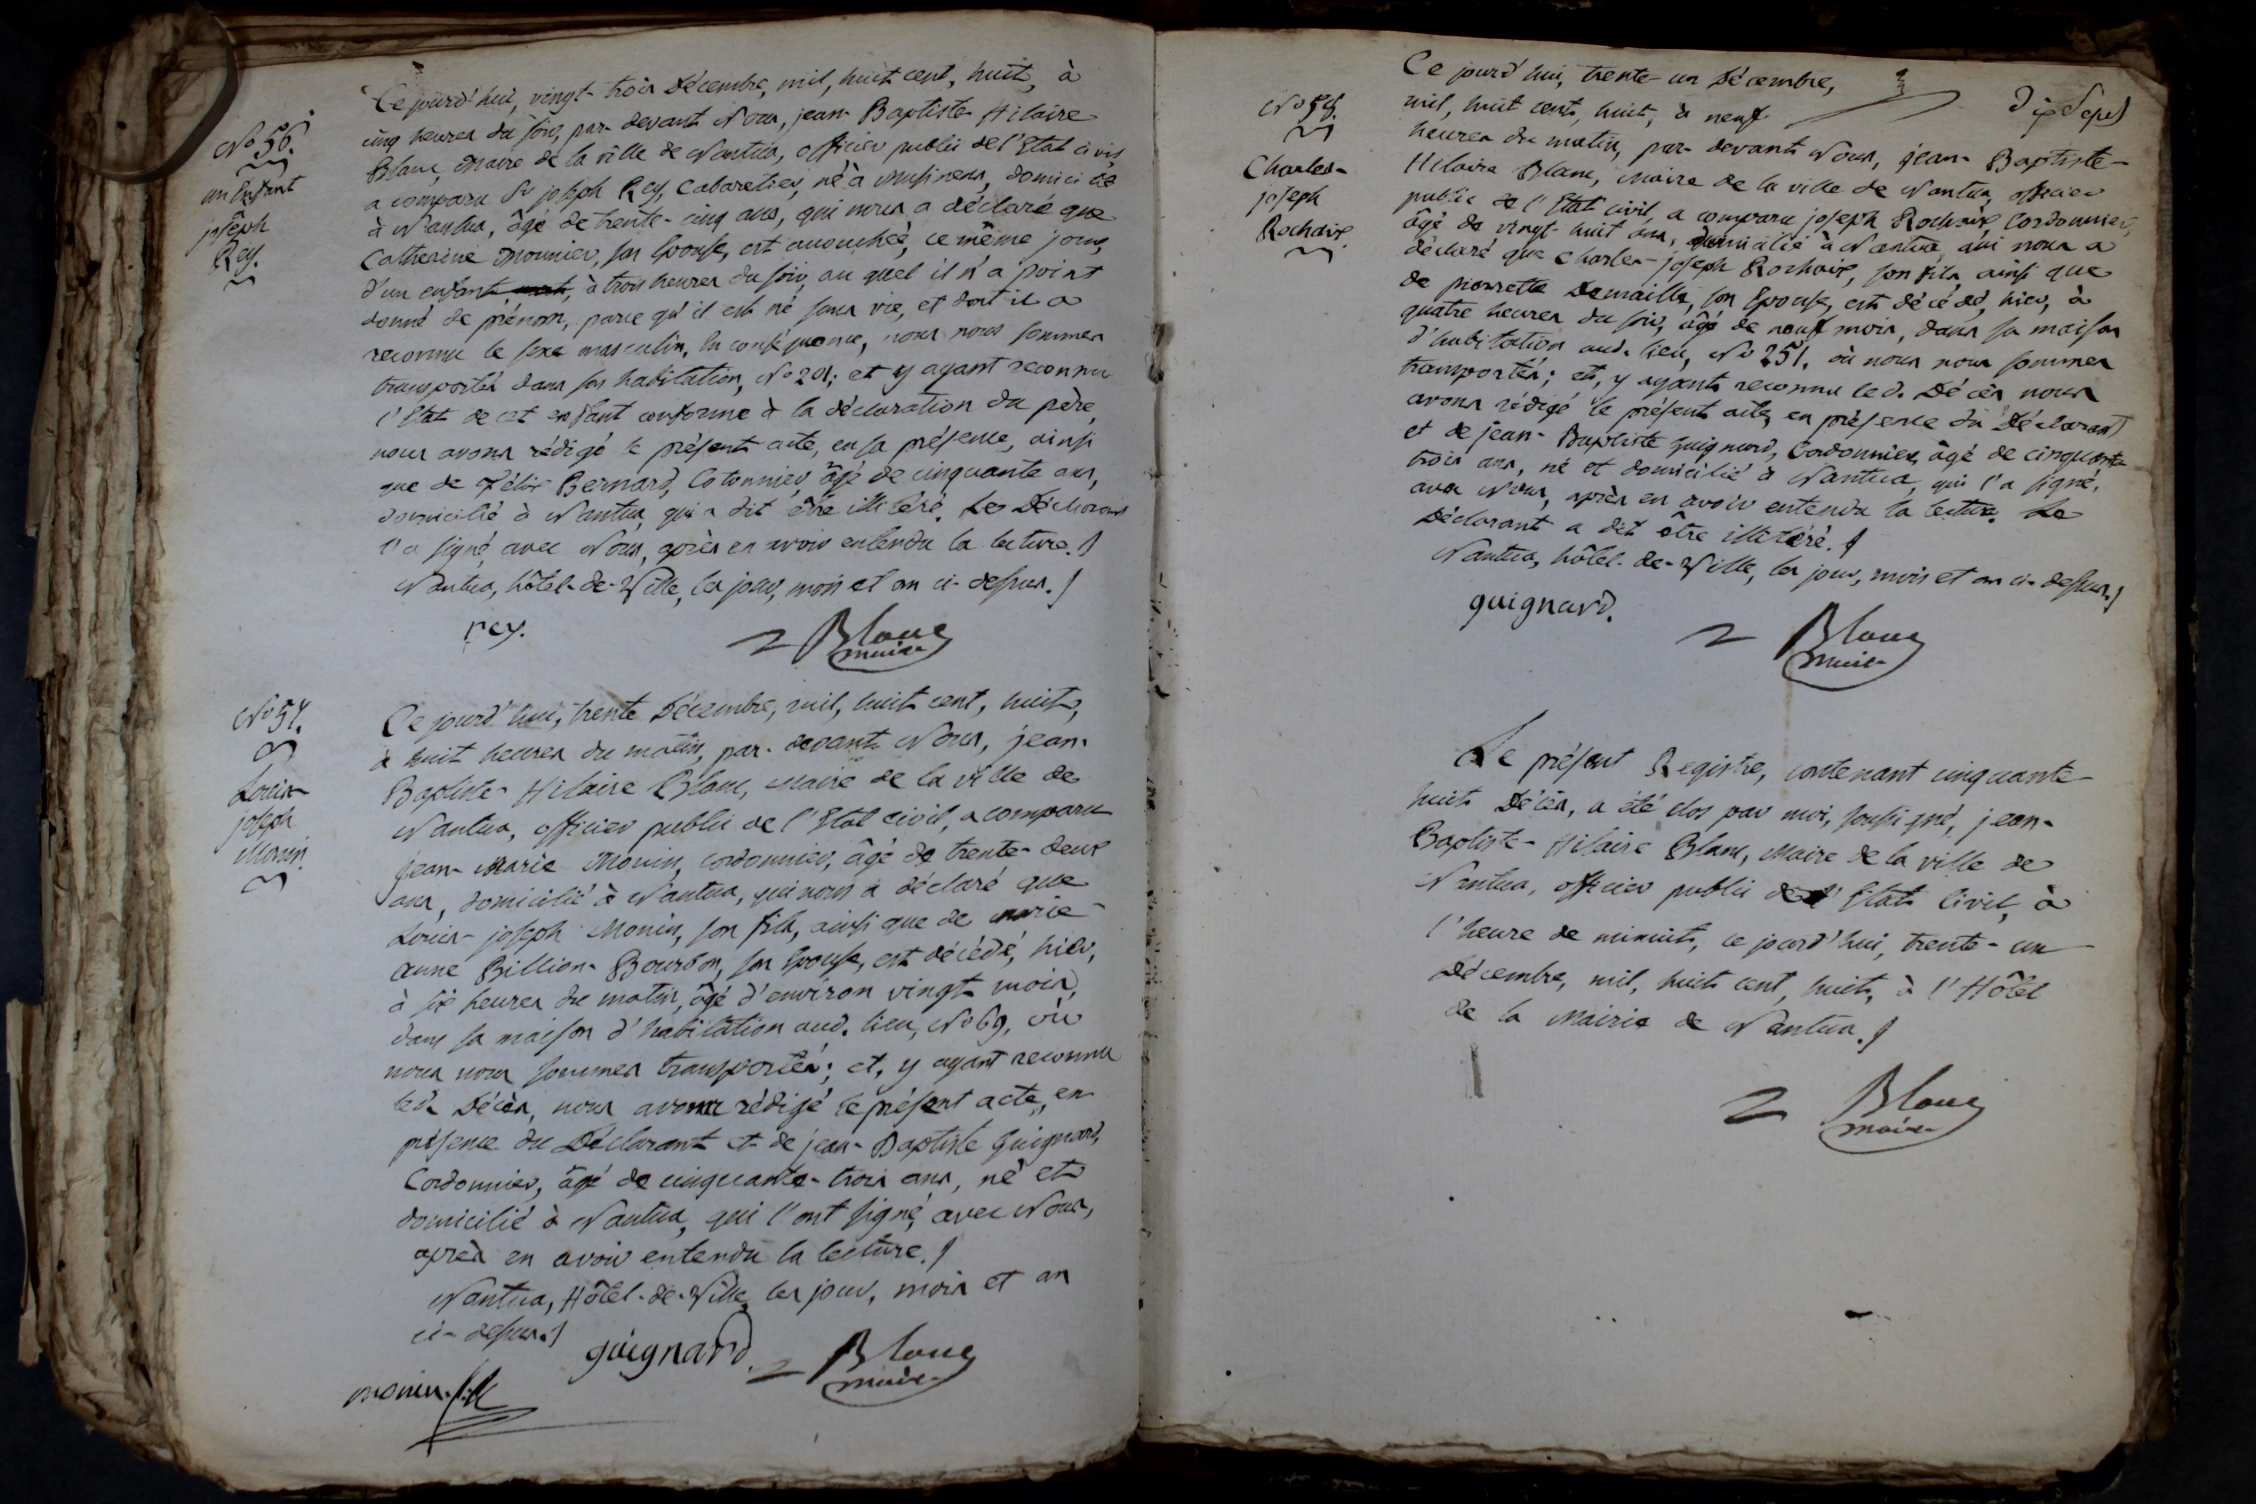 No 56.
un Enfant
joseph
Rey.
Ce jourd'hui, vingt-trois Décembre, mil, huit cent, huit, à
cinq heures du soir, par-devant Nous, jean-Baptiste-Hilaire
Blanc, Maire de la ville de Nantua, officier public de l'Etat civil,
a comparu Sr joseph Rey, Cabaretier, né à musinens, domicilié
à Nantua, âgé de trente-cinq ans, qui nous a déclaré que
Catherine Mounier, son Epouse, est accouchée, ce même jour,
d'un enfant, à trois heures du soir, au quel il n'a point
donné de prénom, parce qu'il est né sans vie, et dont il a
reconnu le sexe masculin. En conséquence, nous nous sommes
transportés dans son habitation, No 201; et y ayant reconnu
l'Etat de cet enfant conforme à la déclaration du père,
nous avons rédigé le présent acte, en sa présence, ainsi
que de Félix Bernard, Cotonnier, âgé de cinquante ans,
domicilié à Nantua, qui a dit être illitéré. Le Déclarant
l'a signé, avec Nous, après en avoir entendu la lecture.
Nantua, hôtel-de-Ville, les jour, mois et an ci-dessus.
rey.
Blanc
maire
No 57.
Louis-
joseph
Monin
Ce jourd'hui, trente Décembre, mil, huit cent, huit,
à huit heures du matin, par-devant Nous, jean-
Baptiste-Hilaire Blanc, Maire de la ville de
Nantua, officier public de l'Etat civil, a comparu
jean-Marie Monin, cordonnier, âgé de trente-deux
ans, domicilié à Nantua, qui nous a déclaré que
Louis-joseph Monin, son fils, ainsi que de marie-
anne Billion-Bourbon, son Epouse, est décédé, hier,
à six heures du matin, âgé d'environ vingt mois,
dans sa maison d'habitation aud. lieu, No 69, où
nous nous sommes transportés; et, y ayant reconnu
led. Décès, nous avons rédigé le présent acte, en
présence du Déclarant et de jean-Baptiste Guignard,
Cordonnier, âgé de cinquante-trois ans, né et
domicilié à Nantua, qui l'ont signé, avec Nous,
après en avoir entendu la lecture.
Nantua, Hôtel-de-Ville, les jour, mois et an
ci-dessus.
guignard.
Blanc
maire
monin fils
dix Sept
No 58.
Charles-
joseph
Rochaix
Ce jourd'hui, trente-un Décembre,
mil, huit cent, huit, à neuf
heures du matin, par-devant Nous, jean-Baptiste-
Hilaire Blanc, Maire de la ville de Nantua, officier
public de l'Etat civil, a comparu joseph Rochaix, Cordonnier,
âgé de vingt-huit ans, domicilié à Nantua, qui nous a
déclaré que Charles-joseph Rochaix, son fils, ainsi que
de pierrette Demaille, son Epouse, est décédé, hier, à
quatre heures du soir, âgé de neuf mois, dans sa maison
d'habitation aud. lieu, No 251. où nous nous sommes
transportés; et, y ayant reconnu led. Décès, nous
avons rédigé le présent acte, en présence du Déclarant
et de jean-Baptiste Guignard, Cordonnier, âgé de cinquante-
trois ans, né et domicilié à Nantua, qui l'a signé,
avec Nous, après en avoir entendu la lecture. Le
Déclarant a dit être illitéré.
Nantua, hôtel-de-Ville, les jour, mois et an ci-dessus.
guignard.
Blanc
maire
Le présent Registre, contenant cinquante-
huit Décès, a été clos par moi, soussigné, jean-
Baptiste-Hilaire Blanc, Maire de la ville de
Nantua, officier public de l'Etat Civil, à
l'heure de minuit, ce jourd'hui, trente-un
Décembre, mil, huit cent, huit, à l'Hôtel
de la Mairie de Nantua.
Blanc
maire